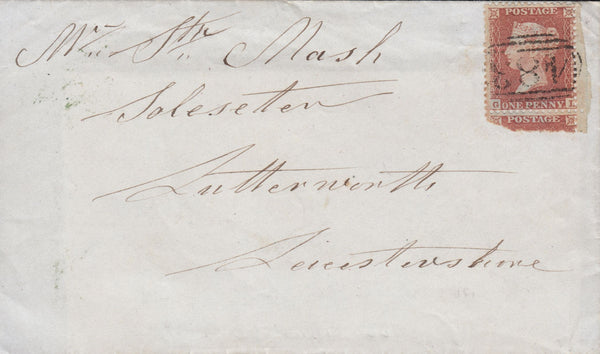 Mr Sthr Mash
Soleseter
Lutterworth
Leicestershire
POSTAGE
ONE PENNY
POSTAGE